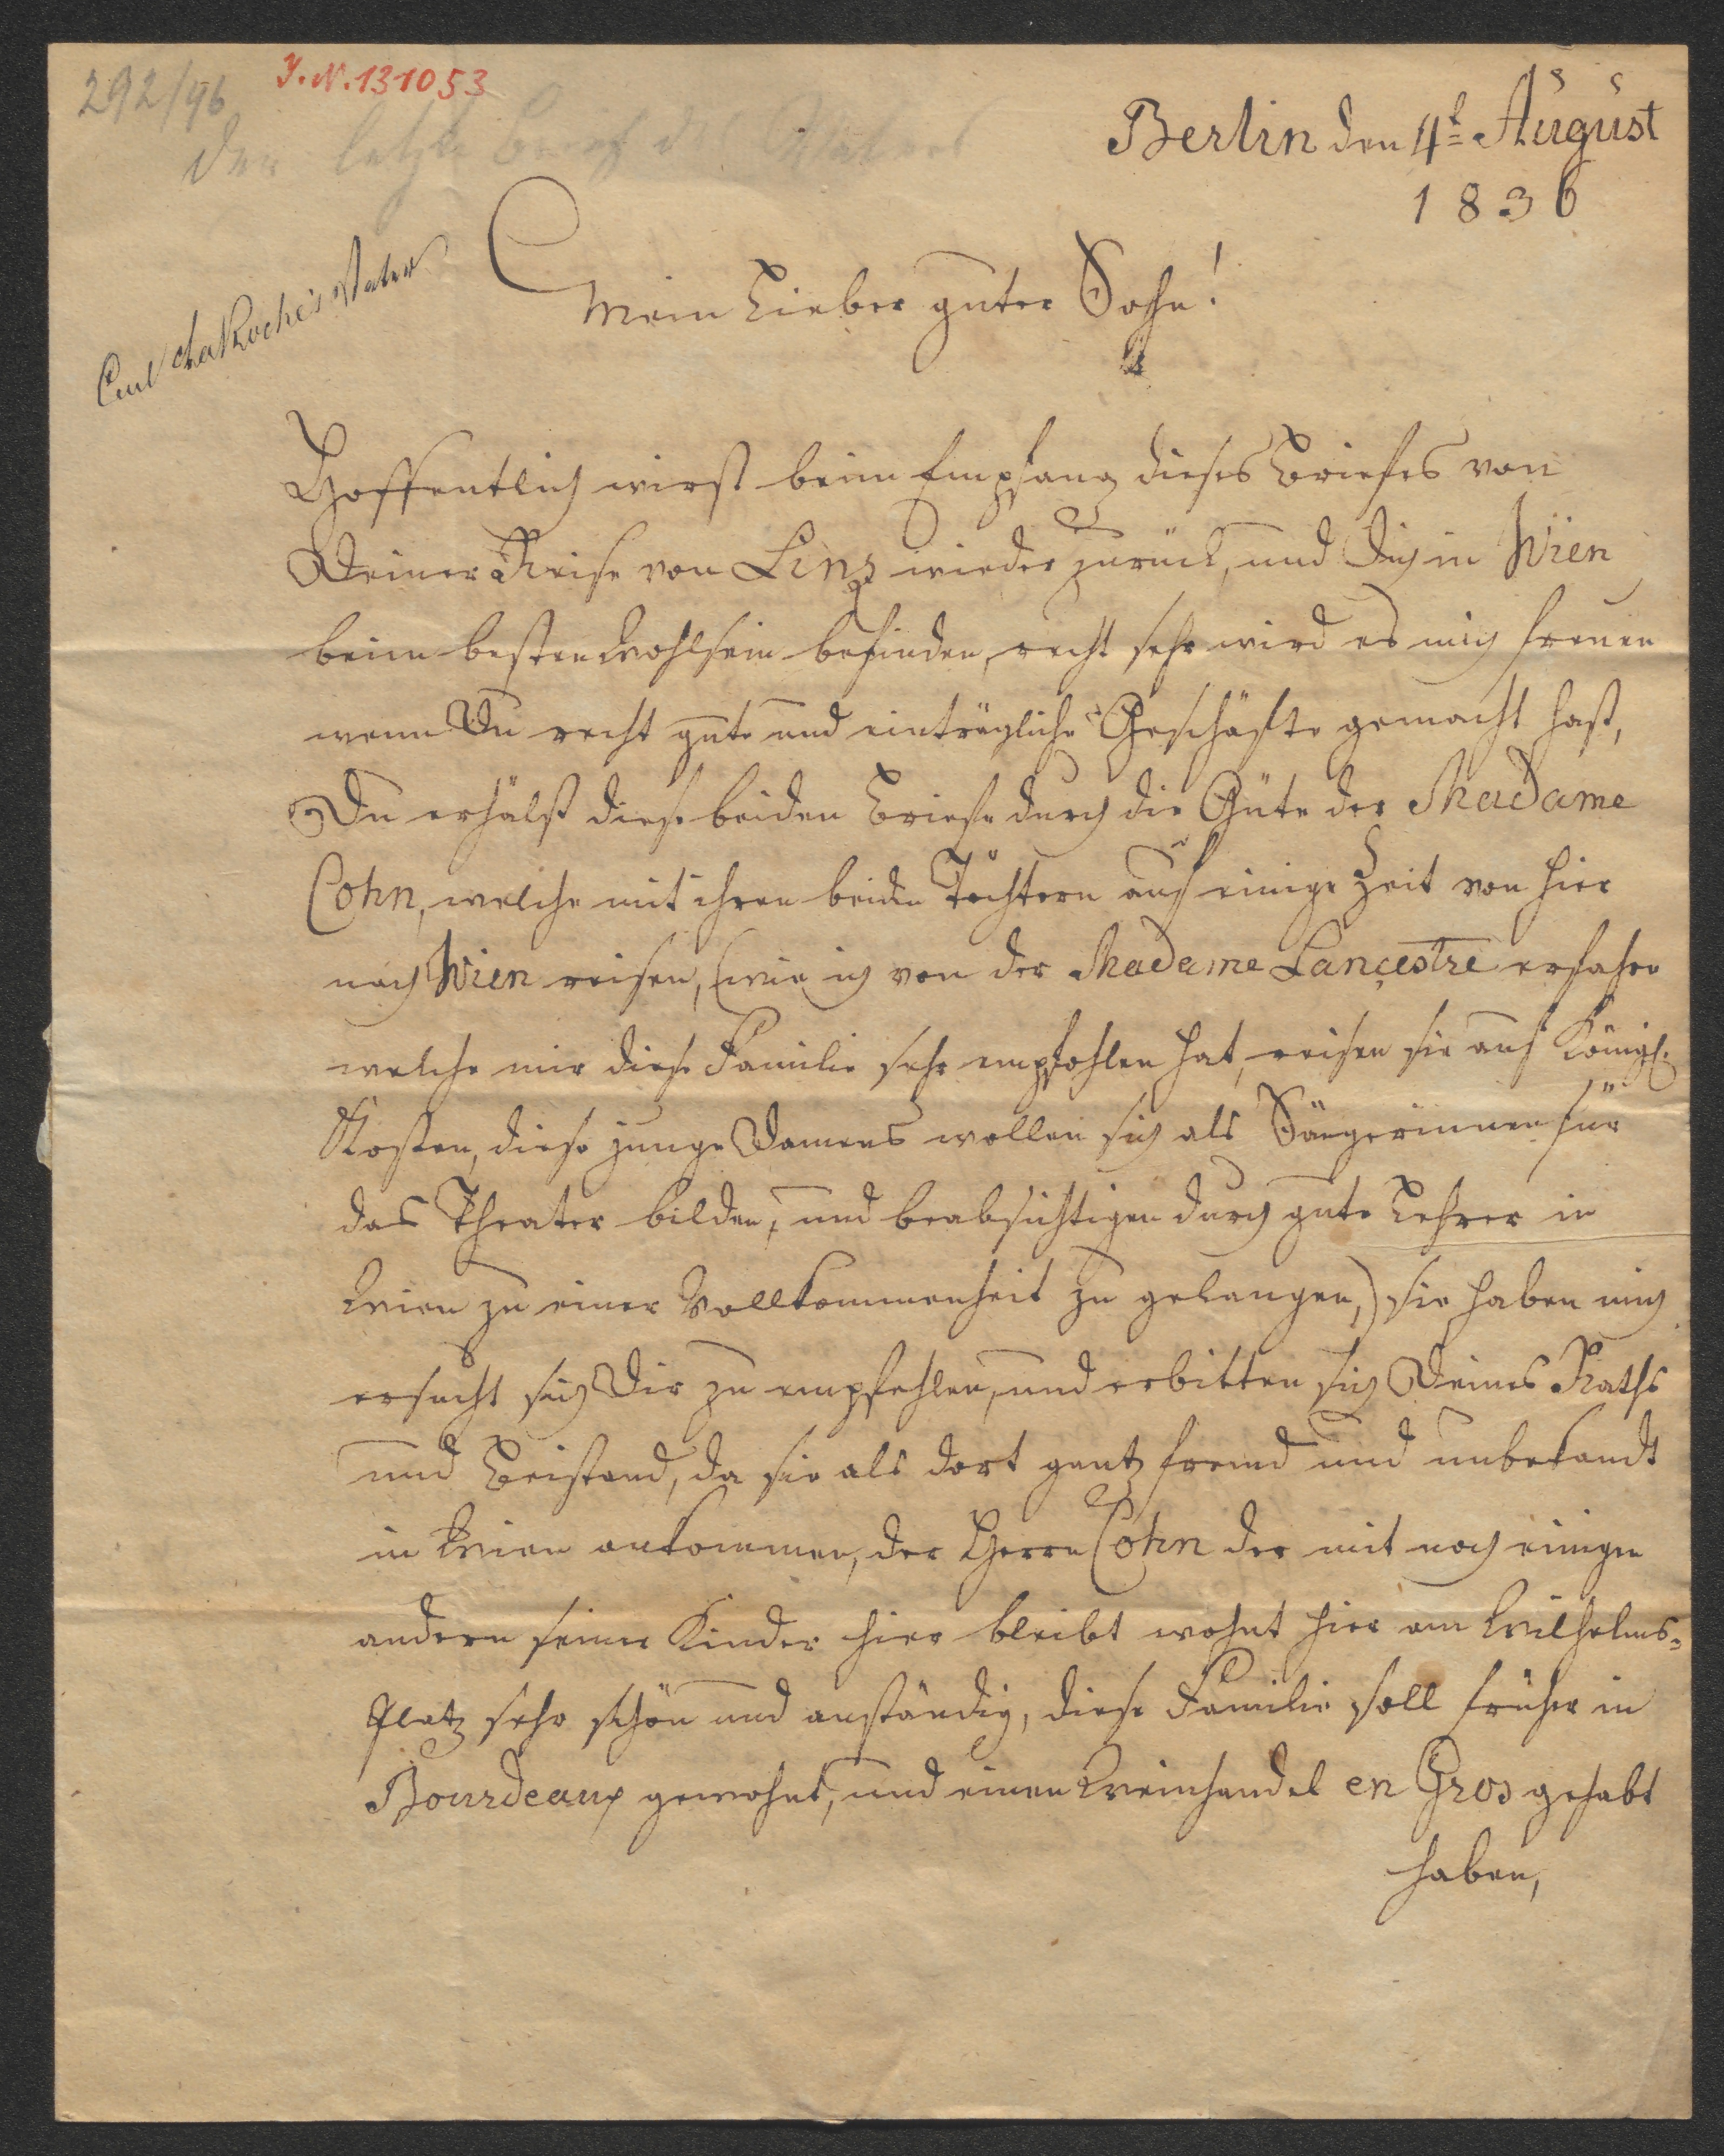 292/96
J.N.131053
Der letzte Brief des Vaters
Berlin den 4t August
1836
Carl LaRoche's Vater
Mein Lieber guter Sohn!
Hoffentlich wirst beim Empfang dieses Briefes von
Deiner Reise von Linz wieder zurück, und Dich in Wien
beim besten Wohlsein befinden, recht sehr wird es mich freuen
wenn Du recht gute und einträgliche Geschäfte gemacht hast,
Du erhälst diese beiden Briefe durch die Güte der Madame
Cohn, welche mit ihren beiden Töchtern auf einige Zeit von hier
nach Wien reisen, (wie ich von der Madame Lançestre erfahre
welche mir diese Familie sehr empfohlen hat, reisen sie auf Königl.
Kosten, diese junge Damens wollen sich als Sängerinnen für
das Theater bilden, und beabsichtigen durch gute Lehrer in
Wien zu einer Vollkommenheit zu gelangen,) sie haben mich
ersucht sich Dir zu empfehlen, und erbitten sich Deines Raths
und Beistand, da sie als dort gantz fremd und unbekandt
in Wien ankommen, der Herrn Cohn der mit noch einigen
andern seiner Kinder hier bleibt wohnt hier am Wilhelms-
Platz sehr schön und anständig, diese Familie soll früher in
Bourdeaux gewohnt, und einen Weinhandel en Gros gehabt
haben,